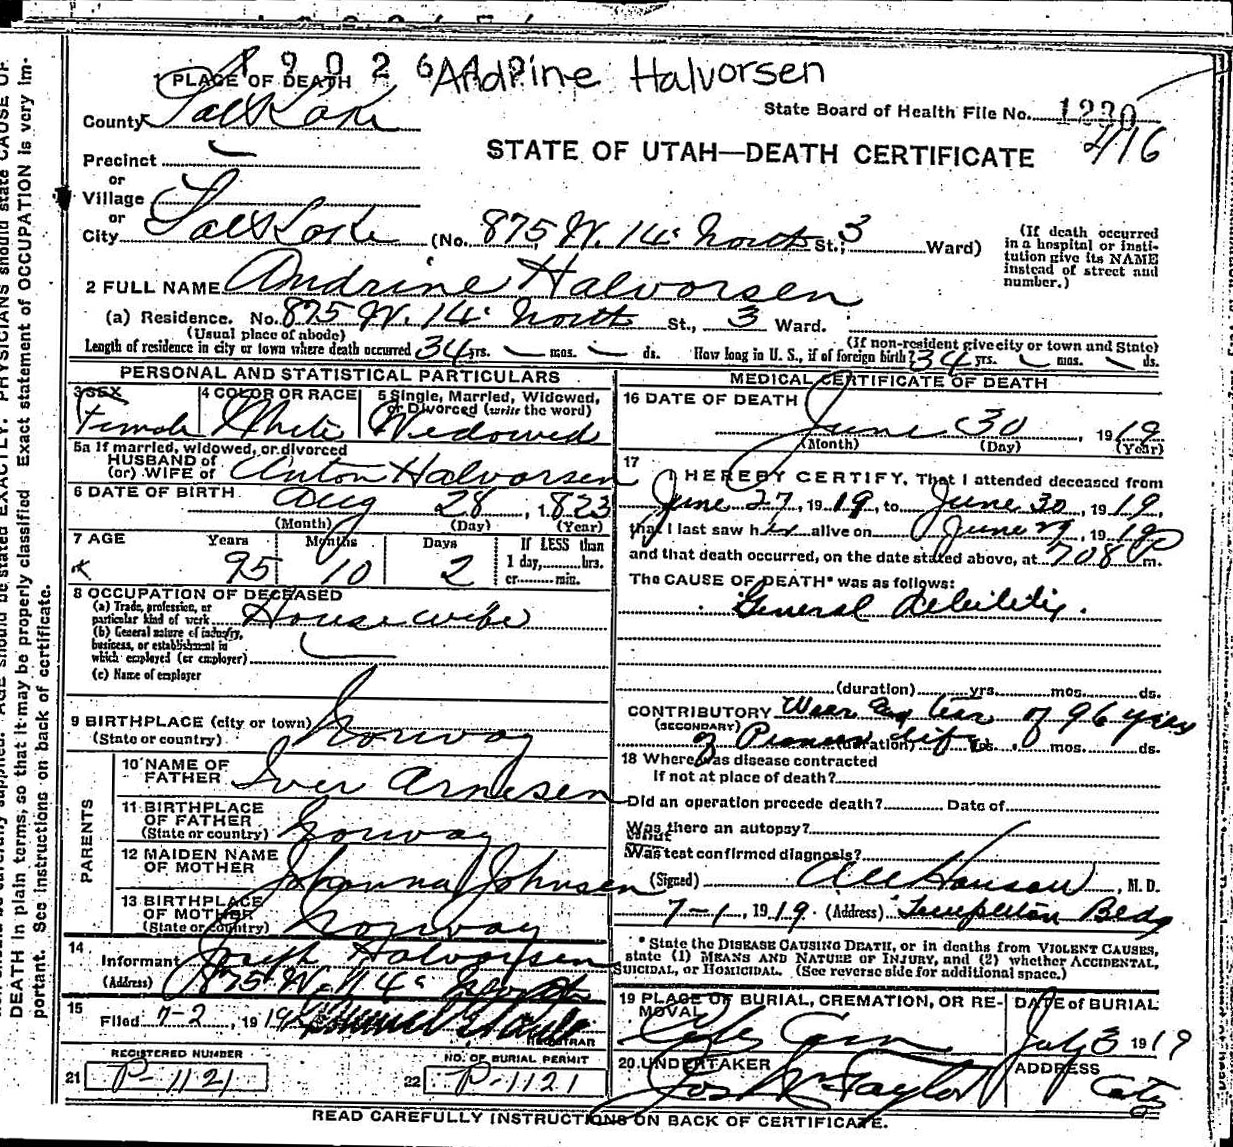 1902 6 Andrine Halvorsen
1 PLACE OF DEATH
State Board of Health File No. 1230
416
County Salt Lake
STATE OF UTAH—DEATH CERTIFICATE
Precinct
or
Village
or
City Salt Lake (No. 875 W. 14 North St.; 3 Ward)
(If death occurred in a hospital or institution give its NAME instead of street and number.)
2 FULL NAME Andrine Halvorsen
(a) Residence. No. 875 W. 14 North St., 3 Ward.
(Usual place of abode) (If non-resident give city or town and State)
Length of residence in city or town where death occurred 34 yrs. — mos. — ds. How long in U. S., if of foreign birth? 34 yrs. — mos. — ds.
PERSONAL AND STATISTICAL PARTICULARS
3 SEX
Female
4 COLOR OR RACE
White
5 Single, Married, Widowed,
or Divorced (write the word)
Widowed
5a If married, widowed, or divorced
HUSBAND of
(or) WIFE of Anton Halvorsen
6 DATE OF BIRTH
Aug 28, 1823
(Month) (Day) (Year)
7 AGE Years Months Days
95 10 2
If LESS than
1 day,......hrs.
or......min.
8 OCCUPATION OF DECEASED
(a) Trade, profession, or
particular kind of work Housewife
(b) General nature of industry,
business, or establishment in
which employed (or employer)
(c) Name of employer
9 BIRTHPLACE (city or town)
(State or country) Norway
PARENTS
10 NAME OF
FATHER Iver Arnesen
11 BIRTHPLACE
OF FATHER
(State or country) Norway
12 MAIDEN NAME
OF MOTHER Johanna Johnsen
13 BIRTHPLACE
OF MOTHER
(State or country) Norway
14
Informant Joseph Halvorsen
(Address) 875 W. 14 North
15
Filed 7-2, 1919
REGISTRAR
REGISTERED NUMBER
21 P-1121
NO. OF BURIAL PERMIT
22 P-1121
MEDICAL CERTIFICATE OF DEATH
16 DATE OF DEATH
June 30, 1919
(Month) (Day) (Year)
17
I HEREBY CERTIFY, That I attended deceased from
June 27, 1919, to June 30, 1919,
that I last saw her alive on June 29, 1919
and that death occurred, on the date stated above, at 7 08 P m.
The CAUSE OF DEATH* was as follows:
General debility.
(duration) yrs. mos. ds.
CONTRIBUTORY Wear and tear of 96 years
(SECONDARY)
of Pioneer life (duration) yrs. mos. ds.
18 Where was disease contracted
if not at place of death?
Did an operation precede death? Date of
Was there an autopsy?
What
Was test confirmed diagnosis?
(Signed) Hanson, M. D.
7-1, 1919. (Address) Templeton Bldg
* State the DISEASE CAUSING DEATH, or in deaths from VIOLENT CAUSES,
state (1) MEANS AND NATURE OF INJURY, and (2) whether ACCIDENTAL,
SUICIDAL, or HOMICIDAL. (See reverse side for additional space.)
19 PLACE OF BURIAL, CREMATION, OR REMOVAL
City Cem
DATE of BURIAL
July 3 1919
20. UNDERTAKER
Jos Wm Taylor
ADDRESS
City
READ CAREFULLY INSTRUCTIONS ON BACK OF CERTIFICATE.
AGE should be stated EXACTLY. PHYSICIANS should state CAUSE OF
DEATH in plain terms, so that it may be properly classified. Exact statement of OCCUPATION is very im-
portant. See instructions on back of certificate.